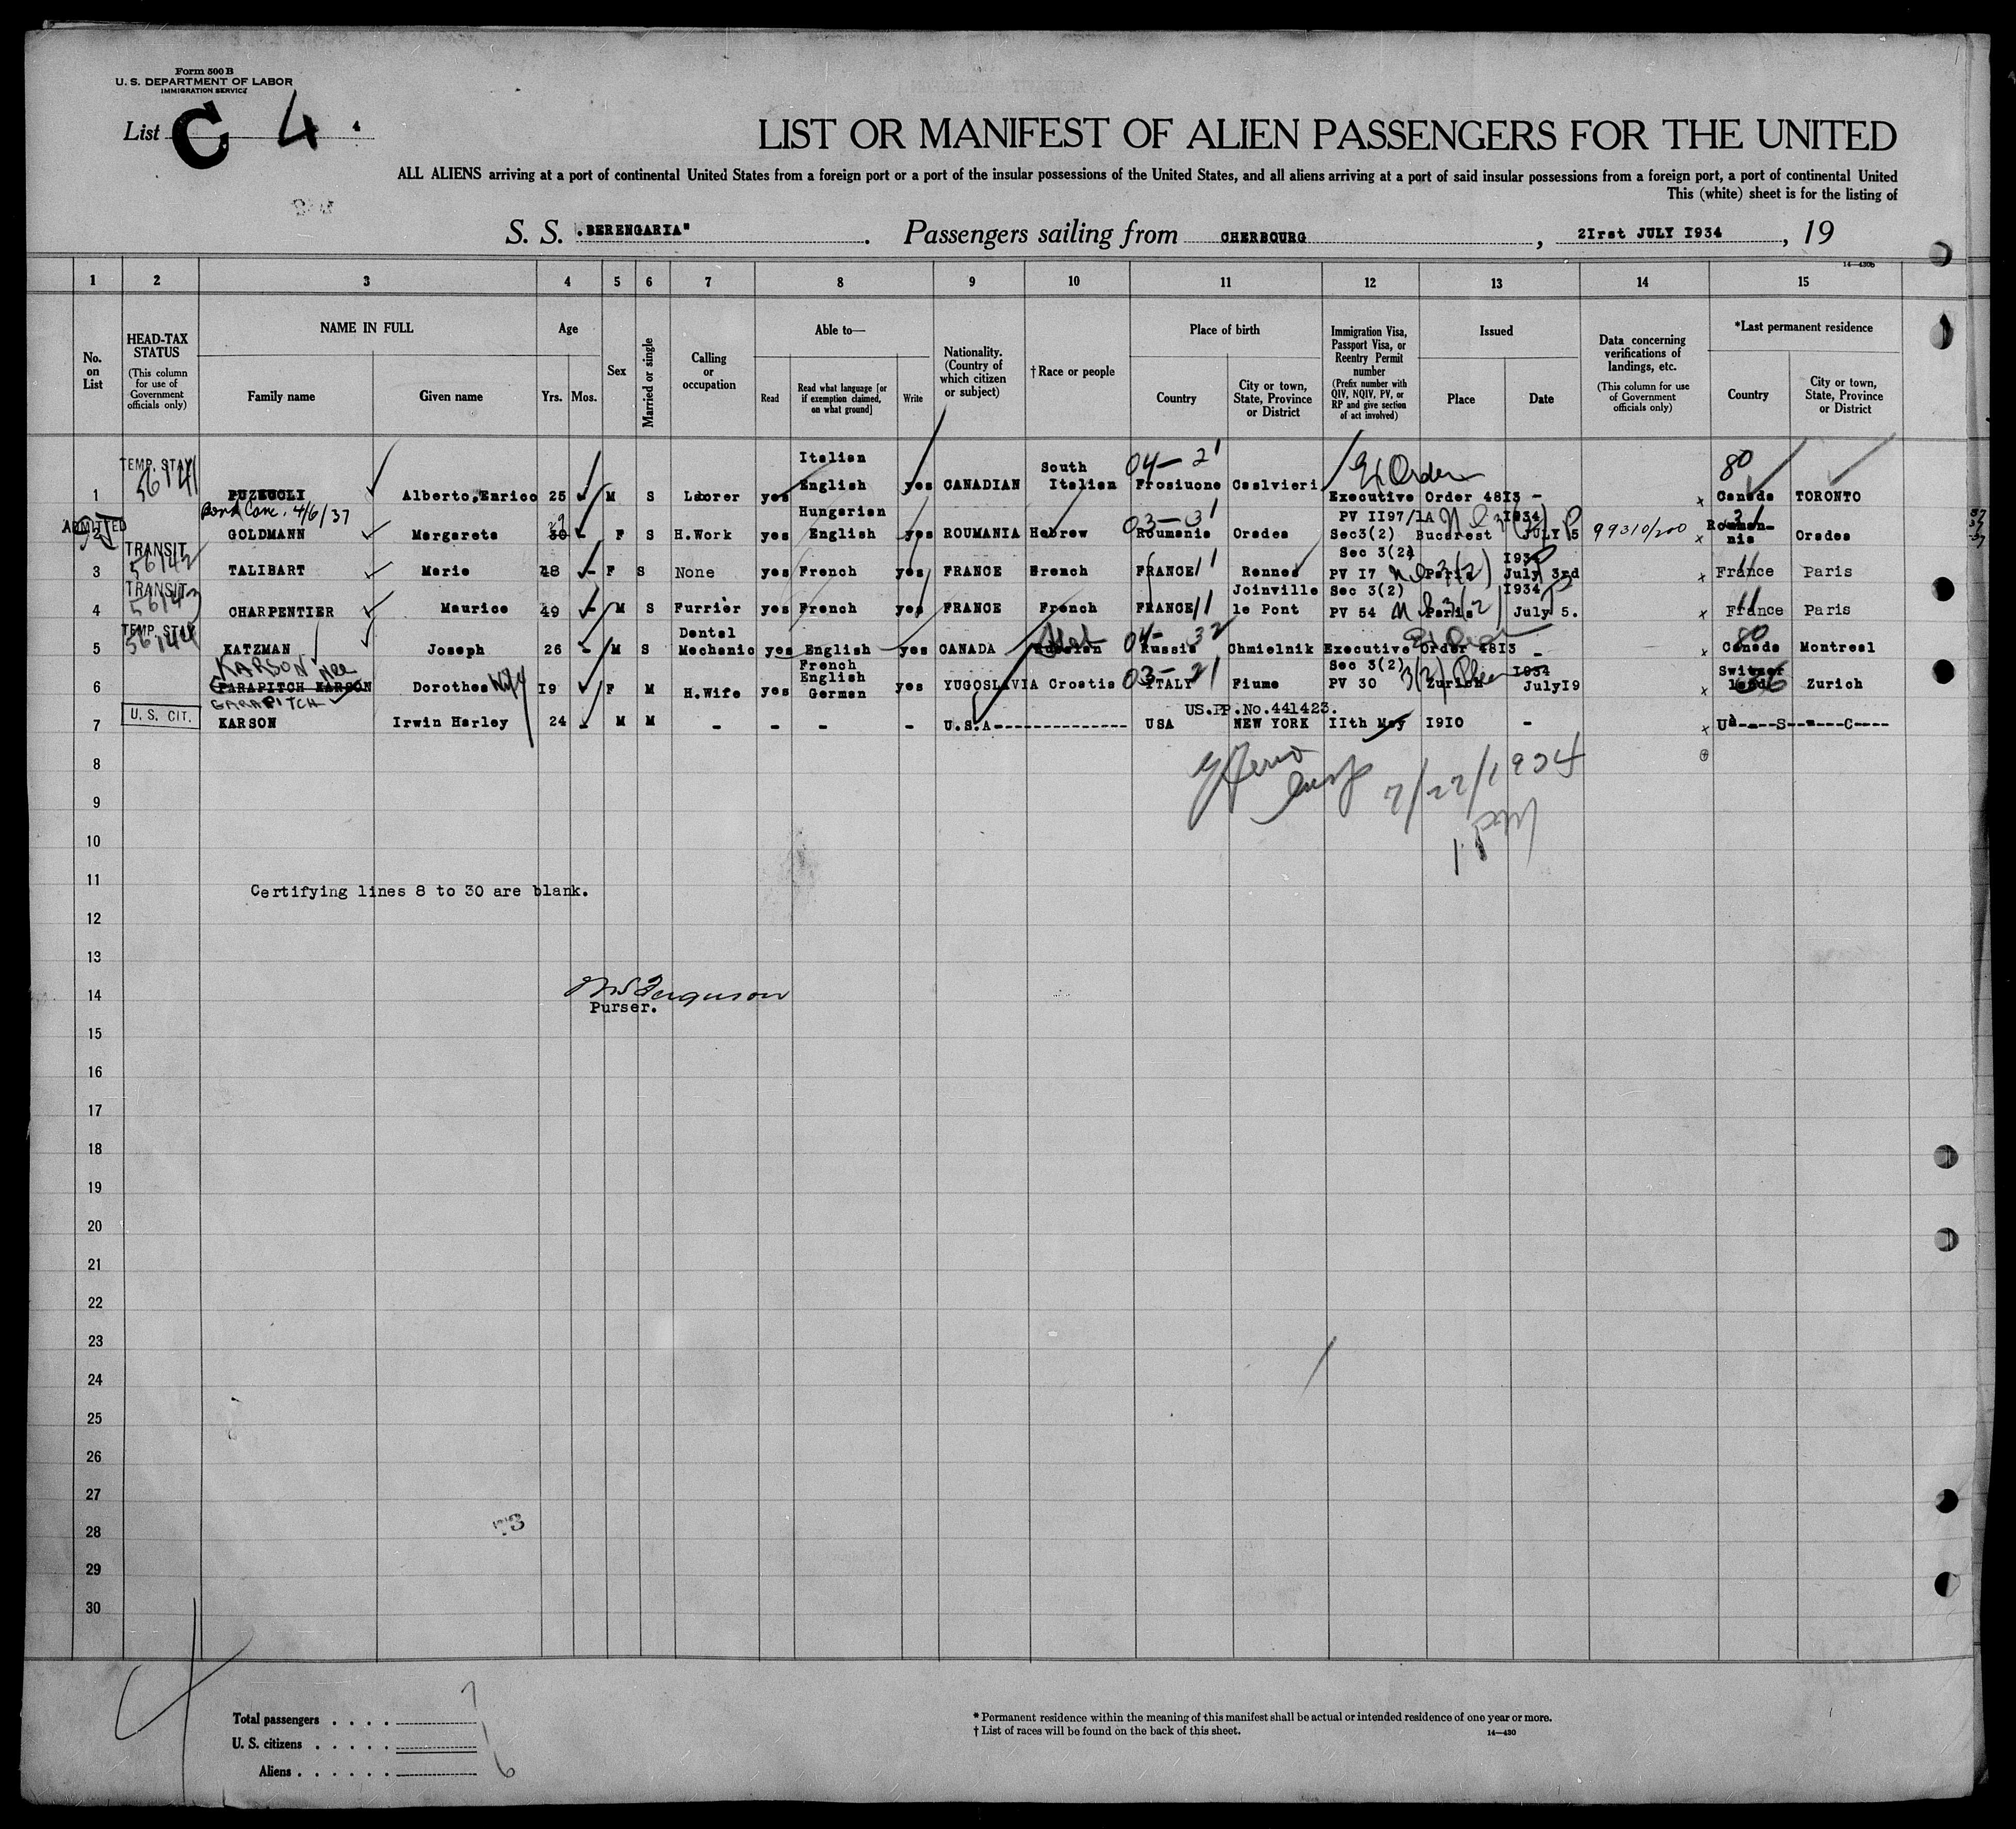 Form 500 B
U. S. DEPARTMENT OF LABOR
IMMIGRATION SERVICE
List C 4 4
LIST OR MANIFEST OF ALIEN PASSENGERS FOR THE UNITED
ALL ALIENS arriving at a port of continental United States from a foreign port or a port of the insular possessions of the United States, and all aliens arriving at a port of said insular possessions from a foreign port, a port of continental United
This (white) sheet is for the listing of
S. S. "BERENGARIA" . Passengers sailing from CHERBOURG , 2Irst JULY I934 , 19
14—430b
1 2 3 4 5 6 7 8 9 10 11 12 13 14 15
No. on List
HEAD-TAX STATUS (This column for use of Government officials only)
NAME IN FULL
Family name Given name
Age
Yrs. Mos.
Sex
Married or single
Calling or occupation
Able to—
Read Read what language [or if exemption claimed, on what ground] Write
Nationality. (Country of which citizen or subject)
†Race or people
Place of birth
Country City or town, State, Province or District
Immigration Visa, Passport Visa, or Reentry Permit number (Prefix number with QIV, NQIV, PV, or RP and give section of act involved)
Issued
Place Date
Data concerning verifications of landings, etc. (This column for use of Government officials only)
*Last permanent residence
Country City or town, State, Province or District
TEMP. STAY 56141 Italian South 04— 21 Ex Order 80
1 Alberto,Enrico 25 M S Laborer yes English yes CANADIAN Italian Frosiuone Caslvieri Executive Order 48I3 - x Canada TORONTO
4/6/37 Hungarian 03—31 PV II97/IA I934 31
ADMITTED 2 GOLDMANN Margareta 30 29 F S H.Work yes English yes ROUMANIA Hebrew Roumania Oradea Sec3(2) Bucarest JULY 5 99310/200 x Rouman-nia Oradea
TRANSIT 56142 Sec 3(2) I934
3 TALIBART Marie 48 - F S None yes French yes FRANCE French FRANCE 11 Rennes PV I7 Paris July 3rd x France 11 Paris
TRANSIT 56143 Joinville Sec 3(2) I934
4 CHARPENTIER Maurice 49 - M S Furrier yes French yes FRANCE French FRANCE 11 le Pont PV 54 Paris July 5. x France 11 Paris
TEMP. STAY 56144 Dental 04— 32 Ex Order 80
5 KATZMAN Joseph 26 - M S Mechanic yes English yes CANADA Russia Chmielnik Executive Order 48I3 - x Canada Montreal
KARSON Nee French English 03—21 Sec 3(2) 3(2) I934 Switzer
6 GARAPITCH KARSON Dorothea Wife I9 F M H.Wife yes German yes YUGOSLAVIA Croatia ITALY Fiume PV 30 Zurich JulyI9 x land Zurich
GARAPITCH
US.PP.No.441423.
7 U. S. CIT. KARSON Irwin Harley 24 - M M - - - - U.S.A--------------- USA NEW YORK IIth May I9I0 - x U----S-----C----
8
7/27/1934
9
10
11 Certifying lines 8 to 30 are blank.
12
13
14 Ferguson
Purser.
15
16
17
18
19
20
21
22
23
24
25
26
27
28 73
29
30
Total passengers . . . . 7
U. S. citizens . . . . . 1
Aliens . . . . . . 6
* Permanent residence within the meaning of this manifest shall be actual or intended residence of one year or more.
† List of races will be found on the back of this sheet. 14—430